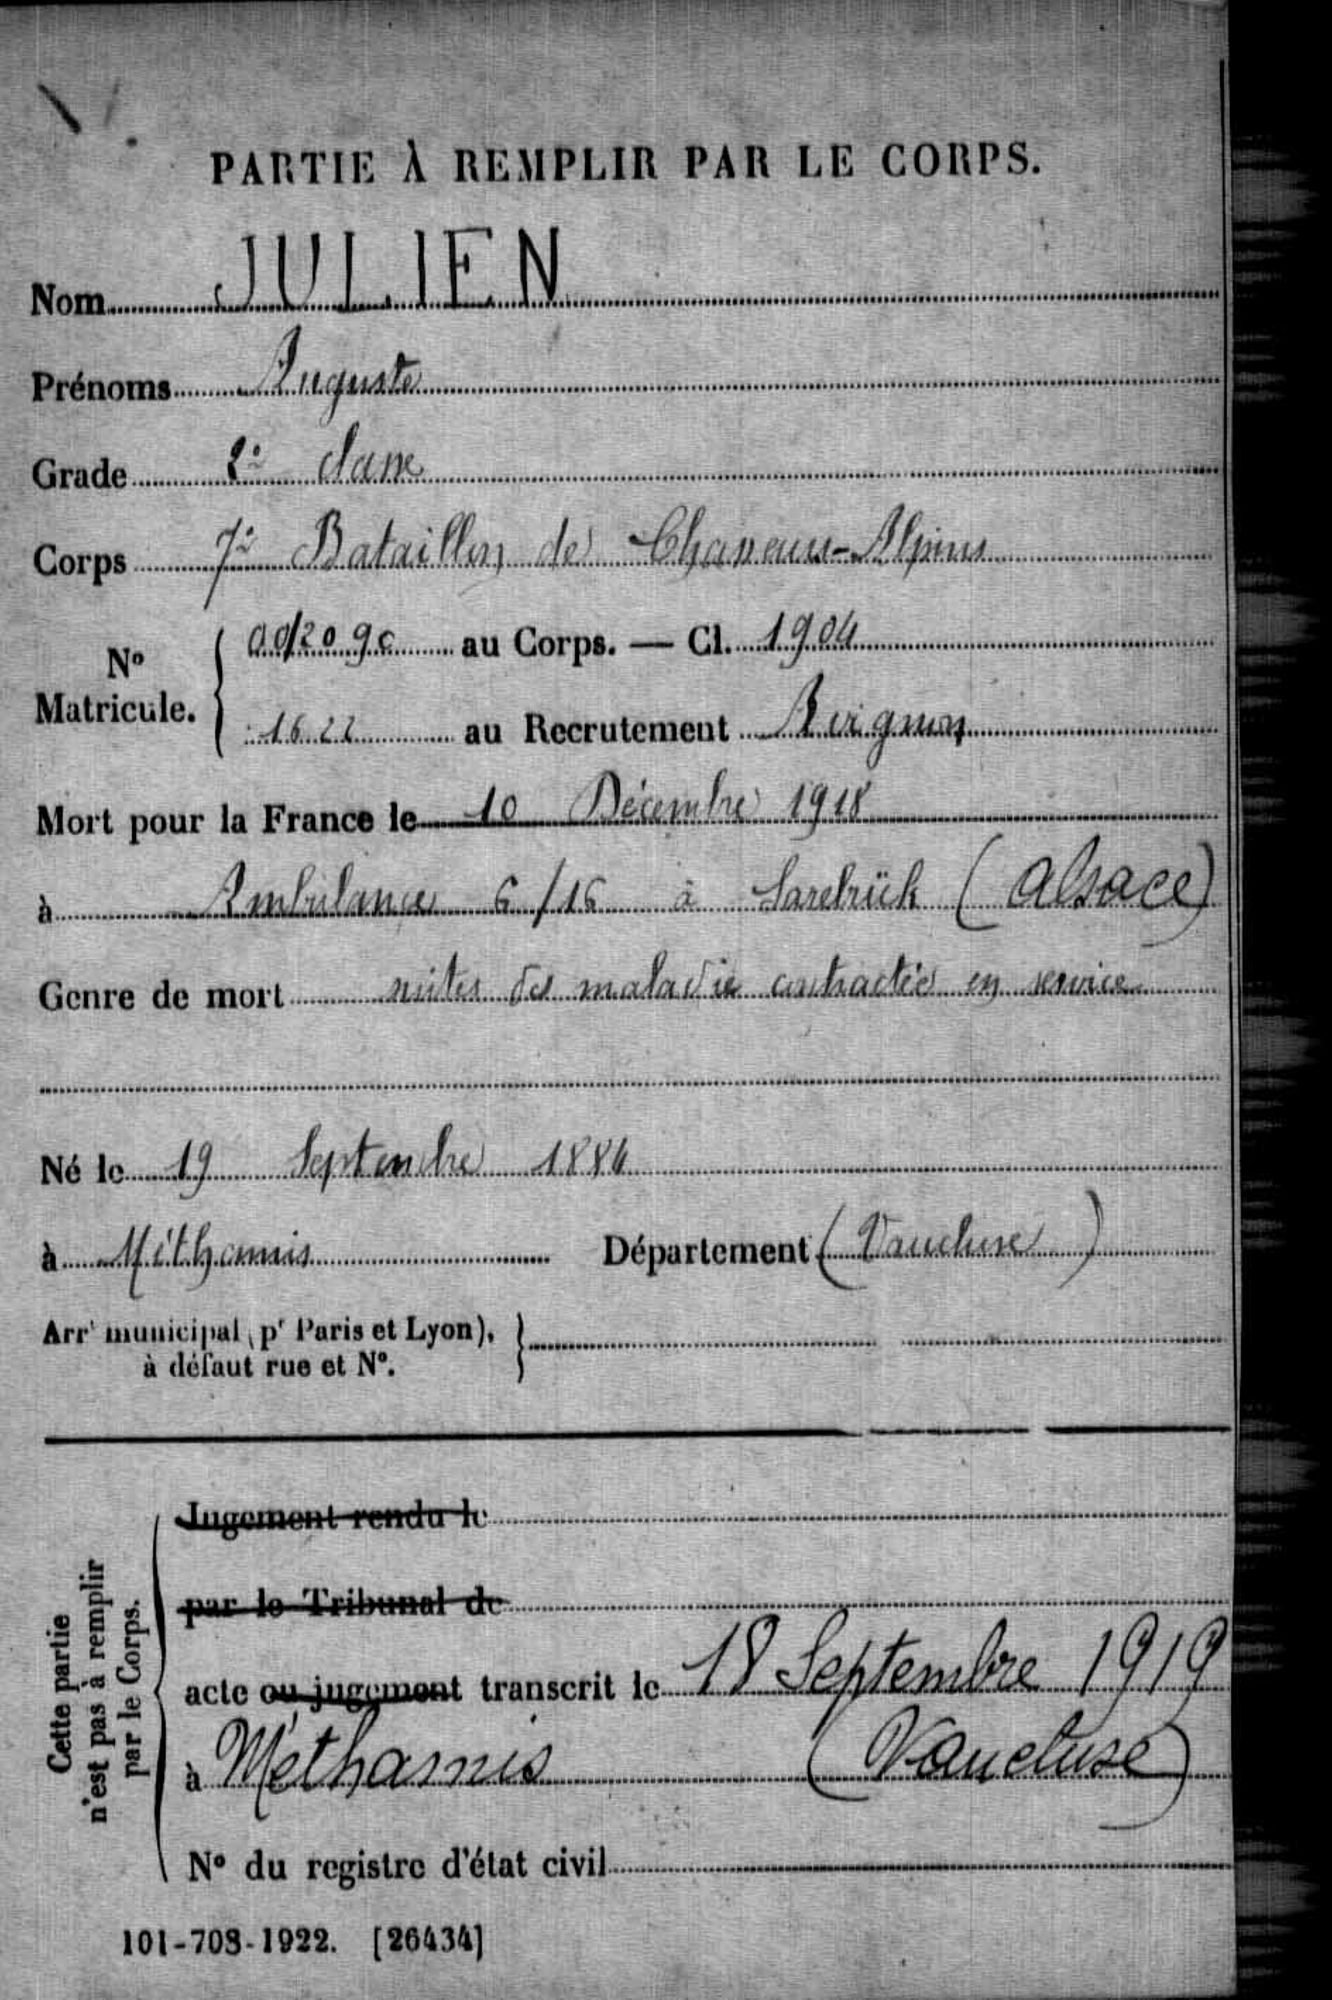 PARTIE À REMPLIR PAR LE CORPS.
Nom JULIEN
Prénoms Auguste
Grade 2e classe
Corps 7e Bataillon de Chasseurs-Alpins
No Matricule. { au Corps. — Cl. 1904
1622 au Recrutement Avignon
Mort pour la France le 10 Décembre 1918
à Ambulance 6/16 à Sarebrück (Alsace)
Genre de mort suites de maladie contractée en service
Né le 19 Septembre 1884
à Méthamis Département (Vaucluse)
Arrt municipal (pr Paris et Lyon), }
à défaut rue et No.
Cette partie
n'est pas à remplir
par le Corps.
Jugement rendu le
par le Tribunal de
acte ou jugement transcrit le 18 Septembre 1919
à Méthamis (Vaucluse)
No du registre d'état civil
101-708-1922. [26434]